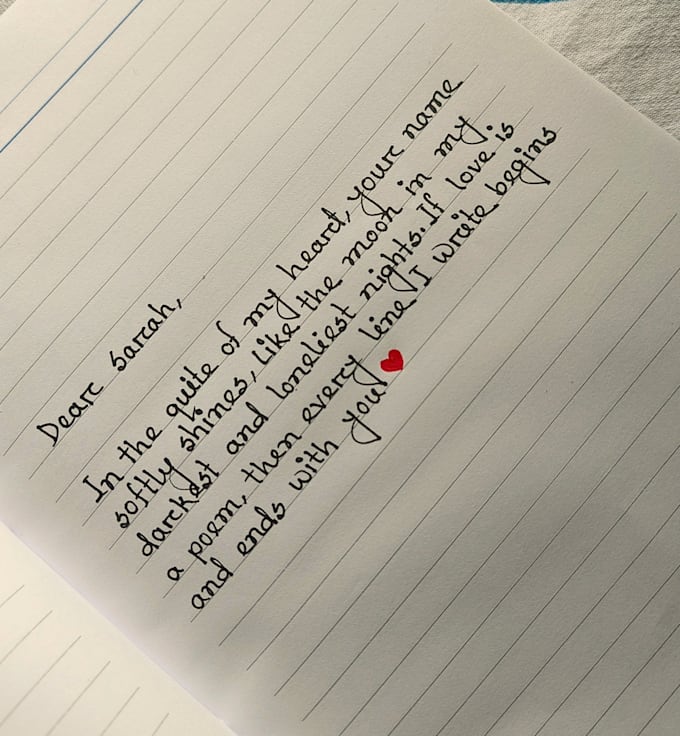 Dear Sarah,
In the quite of my heart, your name
softly shines, like the moon in my
darkest and loneliest nights. If love is
a poem, then every line I write begins
and ends with you.